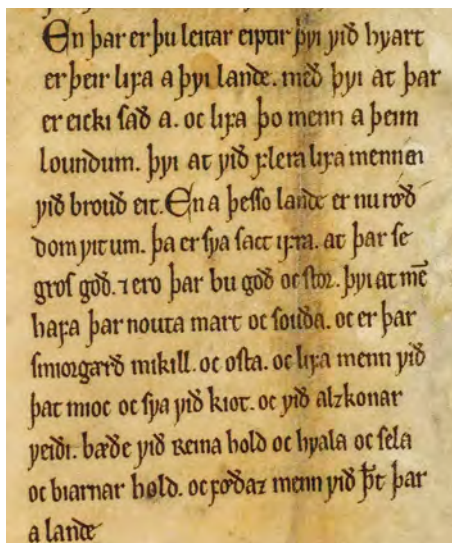 En þar er þu leitar eiptir þvi við hvart
er þeir lifa a þvi lande. með þvi at þar
er eicki sað a. oc lifa þo menn a þeim
loundum. þvi at við fleira lifa menn en
við brouð eit. En a þesso lande er nu rœð
dom vit um. þa er sva sact ifra. at þar se
gros goð. ⁊ ero þar bu goð oc stor. þvi at mē
hafa þar nouta mart oc souða. oc er þar
smiorgærð mikill. oc osta. oc lifa menn við
þat mioc oc sva við kiot. oc við alzkonar
veiði. bæðe við ʀeina hold oc hvala oc sela
oc biarnar hold. oc fœðaz menn við þ̄t þar
a lande